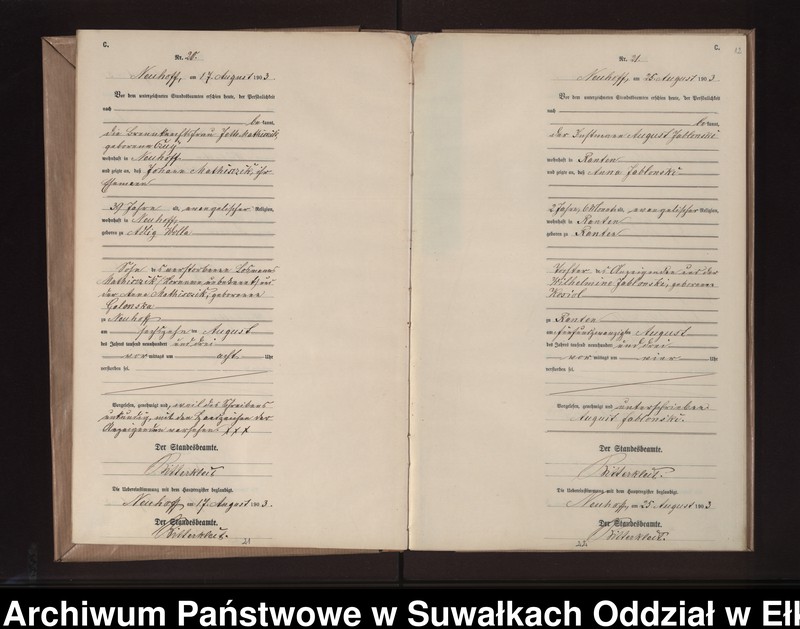 C.
Nr. 20.
Neuhoff, am 17. August 1903.
Vor dem unterzeichneten Standesbeamten erschien heute, der Persönlichkeit
nach
be kannt,
die
geborene
wohnhaft in Neuhoff
und zeigte an, daß Johann Mathiszik, ihr
Ehemann
39 Jahre a. evangelischer Religion,
wohnhaft in Neuhoff,
geboren zu Adlig Wolla
Sohn des verstorbenen
Mathiszik, Vorname unbekannt, und
der Anna Mathiszik, geborenen
zu Neuhoff
am sechszehn ten August
des Jahres tausend neunhundert und drei
vor mittags um acht Uhr
verstorben sei.
Vorgelesen, genehmigt und, weil des Schreibens
unkundig, mit den Handzeichen der
Anzeigenden versehen XXX
Der Standesbeamte.
Ritterkleit
Die Uebereinstimmung mit dem Hauptregister beglaubigt.
Neuhoff, am 17. August 1903.
Der Standesbeamte.
Ritterkleit.
21
C.
12
Nr. 21.
Neuhoff, am 25. August 1903.
Vor dem unterzeichneten Standesbeamten erschien heute, der Persönlichkeit
nach
be kannt,
der Instmann August Jablonski
wohnhaft in Ranten
und zeigte an, daß Anna Jablonski
2 Jahre, 6 Monate, evangelischer Religion,
wohnhaft in Ranten
geboren zu Ranten
Tochter des Anzeigenden und der
Wilhelmine Jablonski, geborene
Kosiol
zu Ranten
am fünfundzwanzigsten August
des Jahres tausend neunhundert und drei
vor mittags um vier Uhr
verstorben sei.
Vorgelesen, genehmigt und unterschrieben
August Jablonski.
Der Standesbeamte.
Ritterkleit.
Die Uebereinstimmung mit dem Hauptregister beglaubigt.
Neuhoff, am 25. August 1903.
Der Standesbeamte.
Ritterkleit.
22
Archiwum Państwowe w Suwałkach Oddział w Ełk